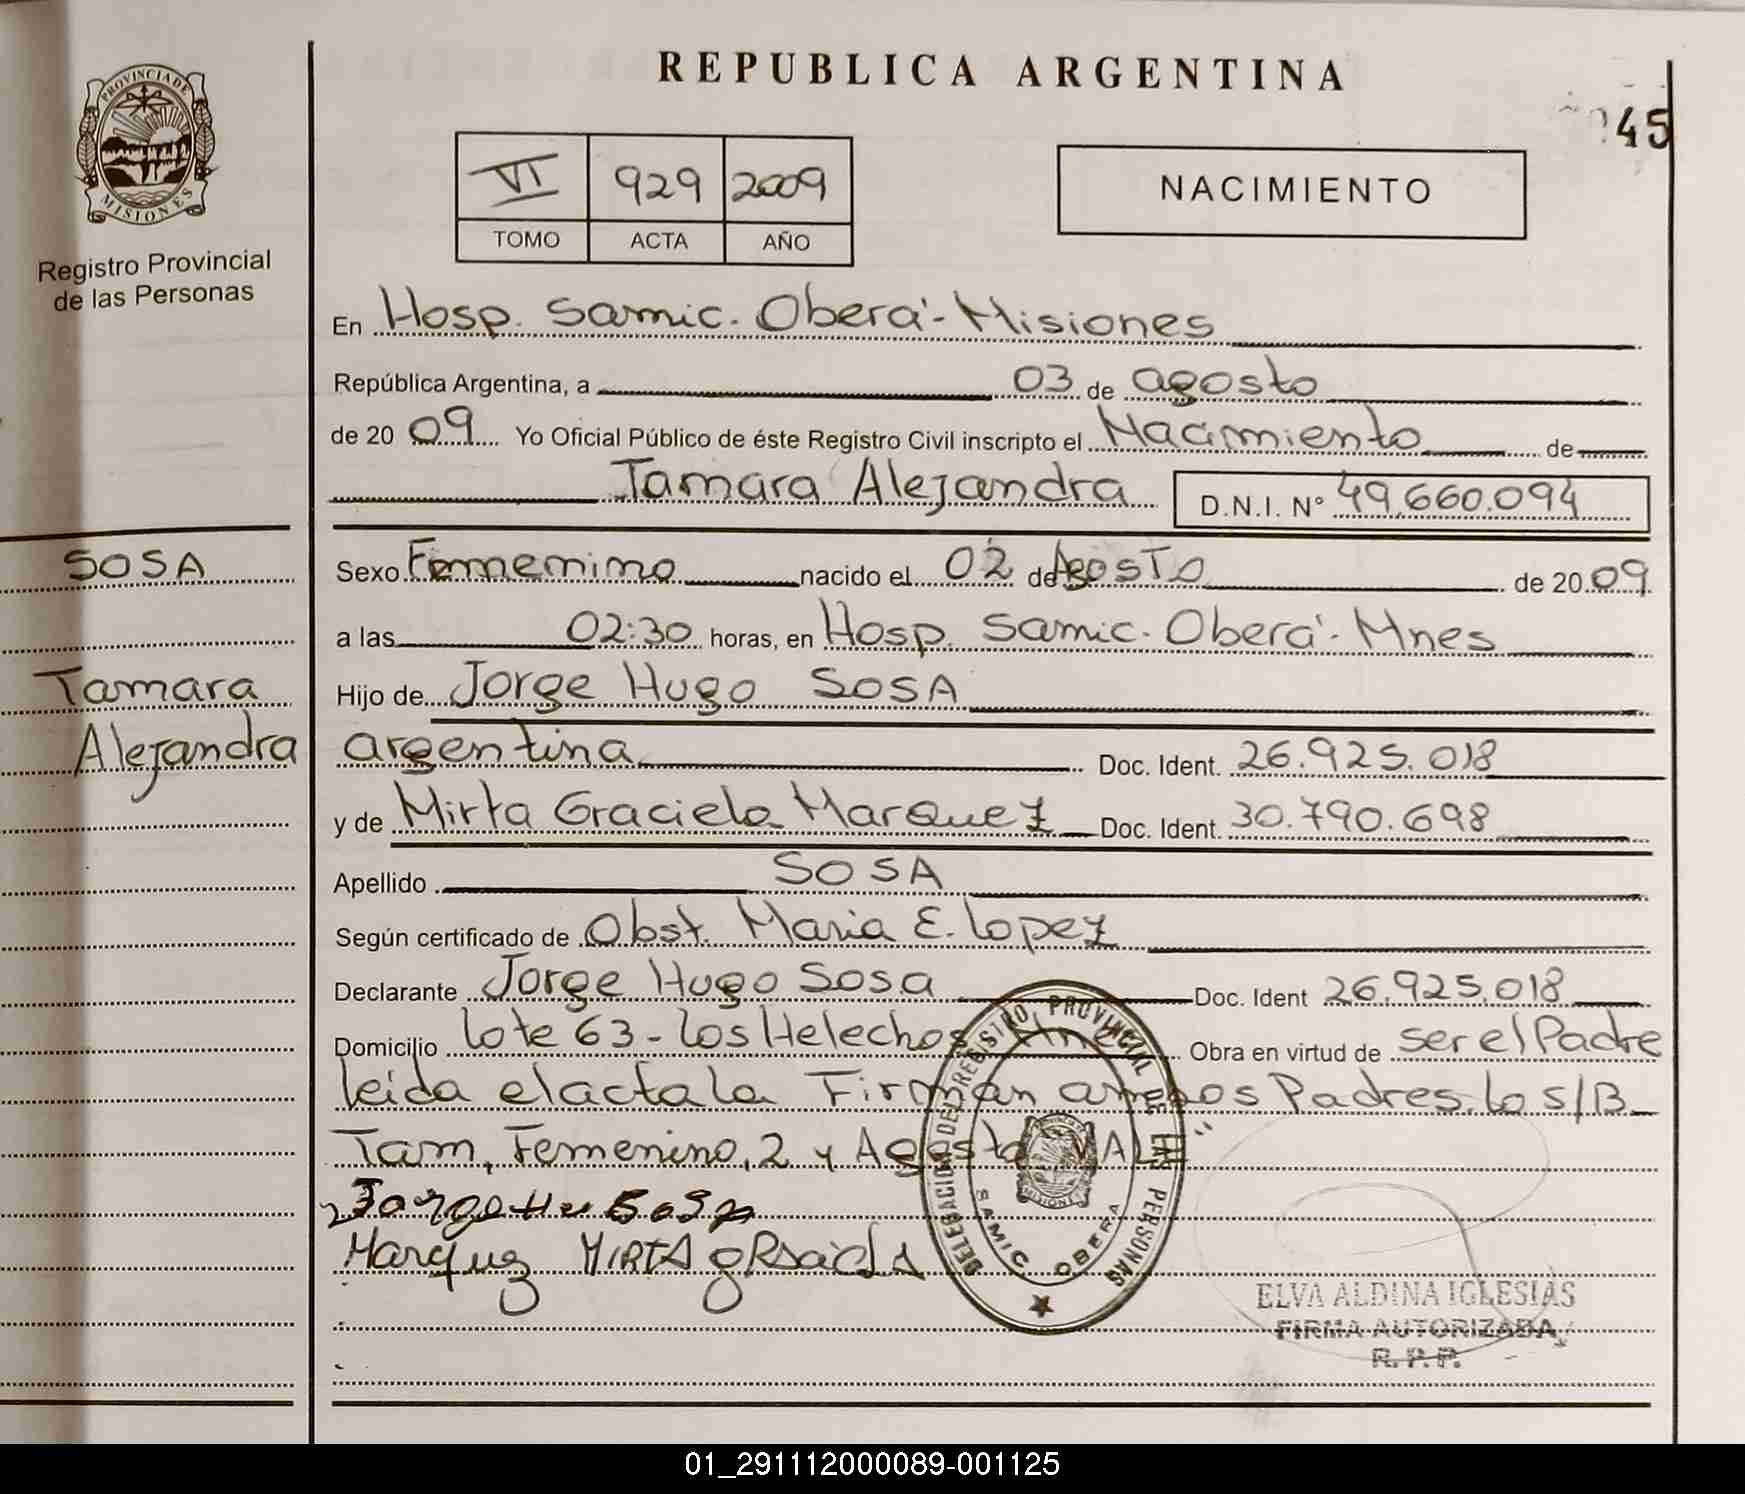 REPUBLICA ARGENTINA
45
PROVINCIA DE
MISIONES
Registro Provincial
de las Personas
VI 929 2009
TOMO ACTA AÑO
NACIMIENTO
En Hosp. Samic. Oberá - Misiones
República Argentina, a 03 de agosto
de 20 09 Yo Oficial Público de éste Registro Civil inscripto el Nacimiento de
Tamara Alejandra D.N.I. N° 49.660.094
SOSA
Tamara
Alejandra
Sexo Femenino nacido el 02 de Agosto de 20 09
a las 02:30 horas, en Hosp. Samic. Oberá - Mnes
Hijo de Jorge Hugo SOSA
argentina Doc. Ident. 26.925.018
y de Mirta Graciela Marquez Doc. Ident. 30.790.698
Apellido SOSA
Según certificado de Obst. Maria E. Lopez
Declarante Jorge Hugo Sosa Doc. Ident 26.925.018
Domicilio Lote 63 - Los Helechos Mnes Obra en virtud de ser el Padre
leida el acta la Firman ambos Padres. lo s/B
Tam, Femenino, 2 y Agosto VALE "
Jorge Hu Sosa
Marquez MIRTA gRaciela
DELEGACION DEL REGISTRO PROVINCIAL DE LAS PERSONAS
SAMIC OBERA
MISIONES
ELVA ALDINA IGLESIAS
FIRMA AUTORIZADA
R. P. P.
01_291112000089-001125